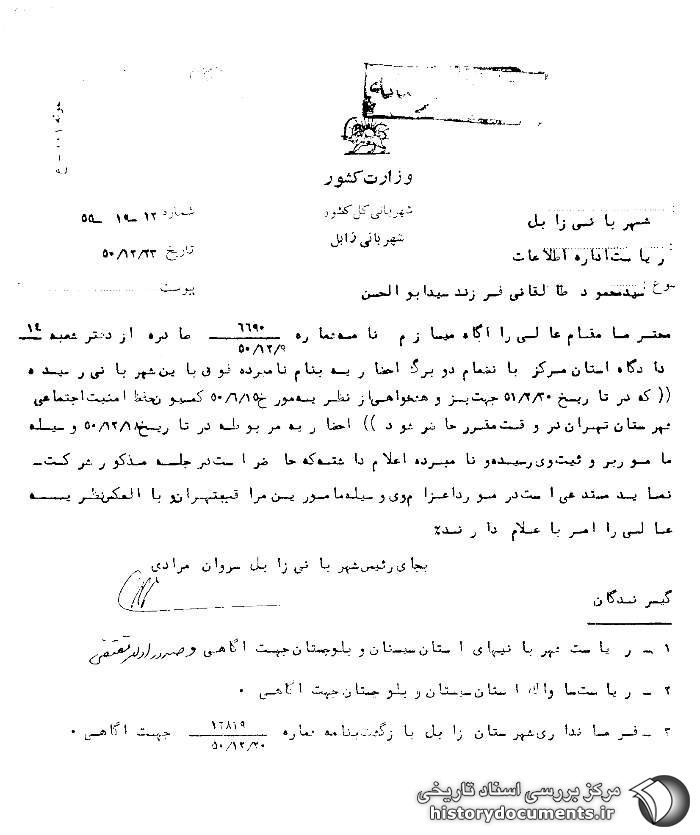 نمونه ۱۰۰ - ج
وزارت کشور
شهربانی کل کشور
شهربانی زابل
شماره ۱۲-۱۹-۵۵
تاریخ ۵۰/۱۲/۲۳
پیوست
شهربانی زابل
ریاست اداره اطلاعات
سید محمود طالقانی فرزند سید ابوالحسن
محترما مقام عالی را آگاه میسازم نامه شماره ۶۶۹۰ ۵۰/۱۲/۹ صادره از دفتر شعبه ۱۴
دادگاه استان مرکز با نضمام دو برگ احضاریه بنام نامبرده فوق باین شهربانی رسیده
(( که در تاریخ ۵۱/۲/۲۰ جهت پژوهشخواهی از نظریه مورخ ۵۰/۶/۱۵ کمسیون حفظ امنیت اجتماعی
شهرستان تهران در وقت مقرر حاضر شود )) احضاریه مربوطه در تاریخ ۵۰/۱۲/۱۸ وسیله
مامور برویت وی رسیده و نامبرده اعلام داشته که حاضر است در جلسه مذکور شرکت -
نماید مستدعی است در مورد اعزام وی وسیله مامورین مراقب بتهران و با العکس نظریه
عالی را امر باعلام دارند٪
بجای رئیس شهربانی زابل سروان مرادی
گیرندگان
۱ - ریاست شهربانیهای استان سیستان و بلوچستان جهت آگاهی و صدور اوامر مقتضی
۲ - ریاست ساواک استان سیستان و بلوچستان جهت آگاهی .
۳ - فرمانداری شهرستان زابل بازگشت بنامه شماره ۱۲۸۱۹ ۵۰/۱۲/۲۰ جهت آگاهی .
مرکز بررسی اسناد تاریخی
historydocuments.ir